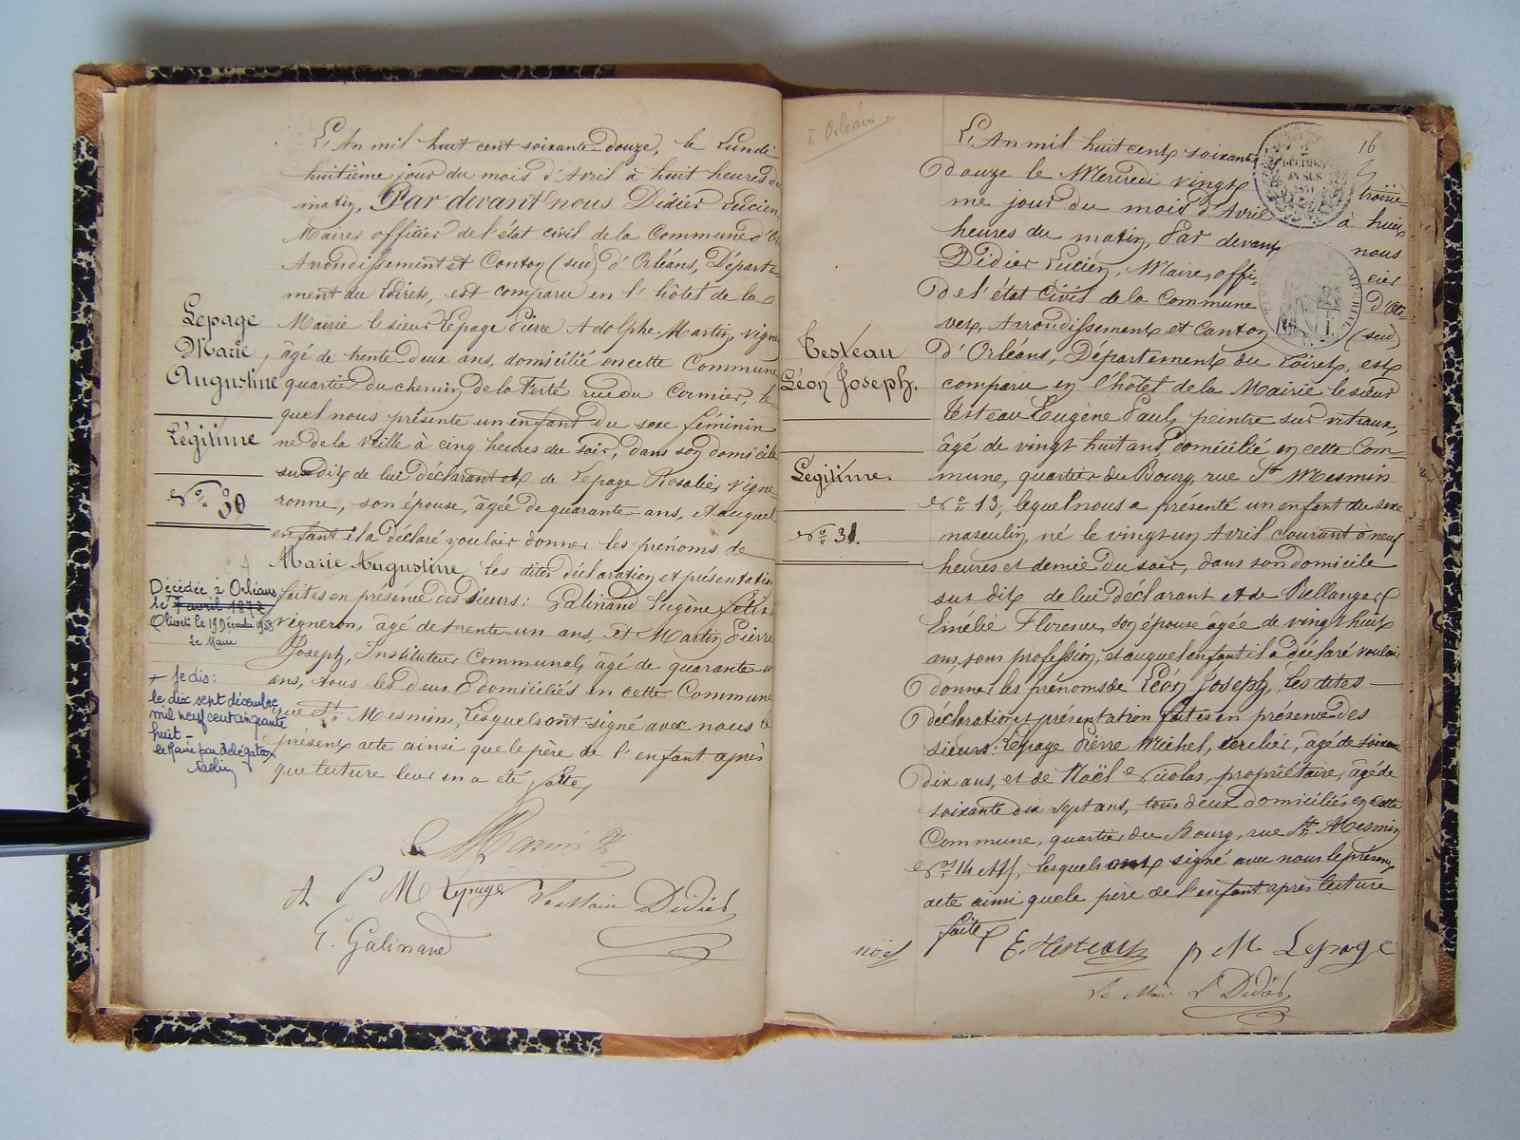 L'An mil huit cent soixante-douze, le Lundi
huitième jour du mois d'Avril à huit heures du
matin, Par devant nous Didier Lucien
Maire, officier de l'état civil de la Commune d'
Arrondissement et Canton (sud) d'Orléans, Départe-
ment du Loiret, est comparu en l'hôtel de la
Mairie le sieur Lepage Pierre Adolphe Martin, vigne
âgé de trente deux ans, domicilié en cette Commune
quartier du chemin de la Ferté rue du Cormier, le
quel nous présente un enfant du sexe féminin
né de la veille à cinq heures du soir, dans son domicile
susdit de lui déclarant et de Lepage Rosalie, vigne
ronne, son épouse, âgée de quarante ans, et auquel
enfant il a déclaré vouloir donner les prénoms de
Marie Augustine, les dites déclaration et présentation
faites en présence des sieurs: Galinand Eugène
vigneron, âgé de trente-un ans, et Martin Pierre
Joseph, Instituteur Communal, âgé de quarante
ans, tous les deux domiciliés en cette Commune
rue St Mesmin, lesquels ont signé avec nous le
présent acte ainsi que le père de l'enfant après
que lecture leur en a été faite,
Lepage
Marie
Augustine
Légitime
No. 30
Décédée à Orléans
le 7 avril 1872
Olivet le 19 Décembre 1958
Le Maire
+ Je dis:
le dix sept décembre
mil neuf cent cinquante
huit -
le Maire par délégation
Martin
A P M Lepage Le Maire Didier
E. Galinand
à Orléans
16
L'An mil huit cent soixante
Douze le Mercredi vingt troisiè-
me jour du mois d'Avril à huit
heures du matin, Par devant nous
Didier Lucien, Maire, offi- cier
De l'état Civil de la Commune d'Oli-
vet, Arrondissement et Canton (sud)
D'Orléans, Département du Loiret, est
comparu en l'hôtel de la Mairie le sieur
Testeau Eugène Paul, peintre sur vitraux,
âgé de vingt huit ans, domicilié en cette Com-
mune, quartier du Bourg, rue St Mesmin
No 13, lequel nous a présenté un enfant du sexe
masculin, né le vingt-un Avril courant à neuf
heures et demie du soir, dans son domicile
sus dit de lui déclarant et de Bellanger
Emélie Florence, son épouse âgée de vingt huit
ans, sans profession, et auquel enfant il a déclaré vouloir
donner les prénoms de Léon Joseph, les dites
déclaration et présentation faites en présence des
sieurs: Lepage Pierre Michel, cerclier, âgé de soixante
dix ans, et de Noël Nicolas, propriétaire, âgé de
soixante dix sept ans, tous deux domiciliés en cette
Commune, quartier du Bourg, rue St Mesmin
Nos 14 et 15, lesquels ont signé avec nous le présent
acte ainsi que le père de l'enfant après lecture
faite
Testeau
Léon Joseph.
Légitime.
No. 31.
noel E. Testeau p M Lepage
Le Maire L Didier